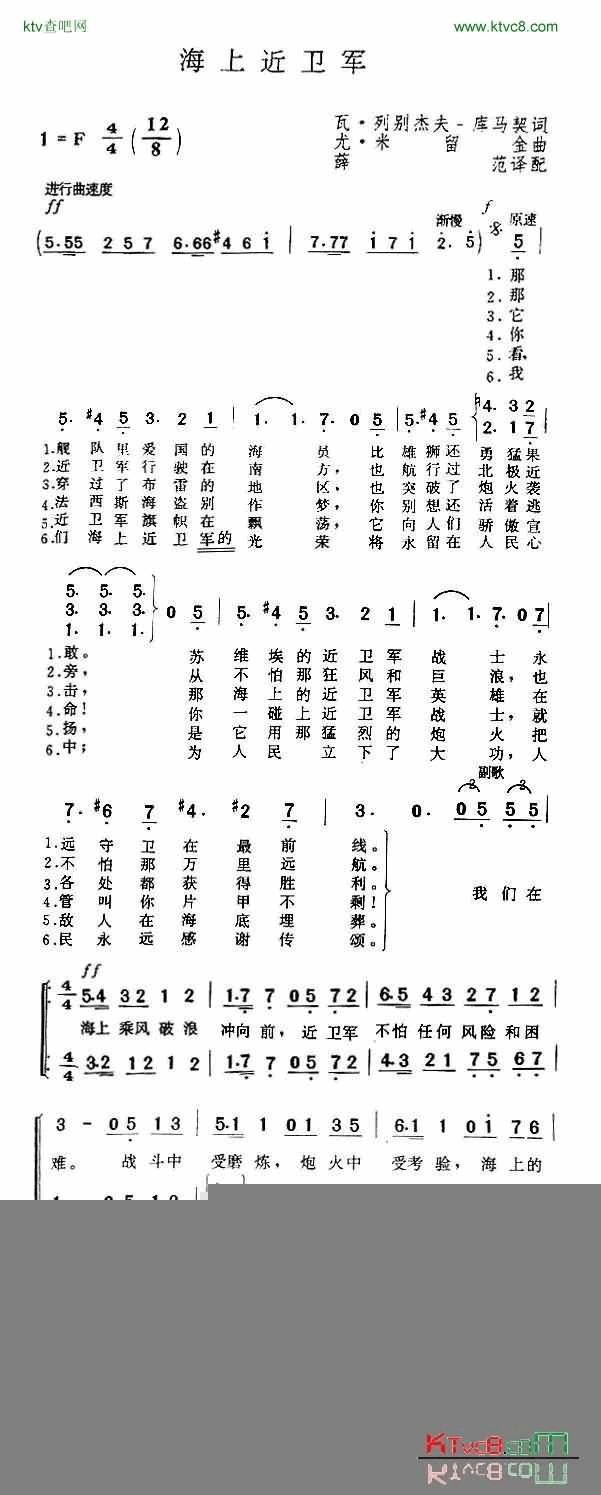 ktv查吧网
www.ktvc8.com
海上近卫军
1=F 4/4 (12/8)
瓦·列别杰夫-库马契词
尤·米留金曲
薛范译配
进行曲速度
ff
渐慢
f
原速
(5.55 2 5 7 6.66 #4 6 1 | 7.77 1 7 1 2. 5) 5 |
1.那
2.那
3.它
4.你
5.看,
6.我
5. #4 5 3. 2 1 | 1. 1. 7. 0 5 | 5. #4 5 4. 3 2
2. 1 7
1.舰队里爱国的海员比雄狮还勇猛果
2.近卫军行驶在南方,也航行过北极近
3.穿过了布雷的地区,也突破了炮火袭
4.法西斯海盗别作梦,你别想还活着逃
5.近卫军旗帜在飘荡,它向人们骄傲宣
6.们海上近卫军的光荣将永留在人民心
5. 5. 5.
3. 3. 3.
1. 1. 1.
0 5 | 5. #4 5 3. 2 1 | 1. 1. 7. 0 7 |
1.敢。苏维埃的近卫军战士永
2.旁,从不怕那狂风和巨浪,也
3.击,那海上的近卫军英雄在
4.命!你一碰上近卫军战士,就
5.扬,是它用那猛烈的炮火把
6.中;为人民立下了大功,人
副歌
7. #6 7 #4. 2 7 | 3. 0. 0 5 5 5 5 |
1.远守卫在最前线。
2.不怕那万里远航。
3.各处都获得胜利。
4.管叫你片甲不剩!
5.敌人在海底埋葬。
6.民永远感谢传颂。
我们在
ff
4/4 5.4 3 2 1 2 | 1.7 7 0 5 7 2 | 6.5 4 3 2 7 1 2 |
海上乘风破浪冲向前,近卫军不怕任何风险和困
4/4 3.2 1 2 1 2 | 1.7 7 0 5 7 2 | 4.3 2 1 7 5 6 7 |
3 - 0 5 1 3 | 5.1 1 0 1 3 5 | 6.1 1 0 1 7 6 |
难。战斗中受磨炼,炮火中受考验,海上的
KTVC8.COM